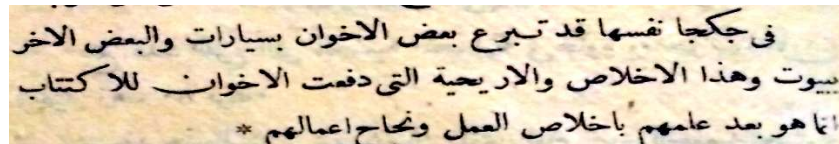 فى جكجا نفسها قد تبرع بعض الاخوان بسيارات والبعض الاخر
ببيوت وهذا الاخلاص والاريحية التى دفعت الاخوان للاكتتاب
انما هو بعد علمهم باخلاص العمل ونجاح اعمالهم *